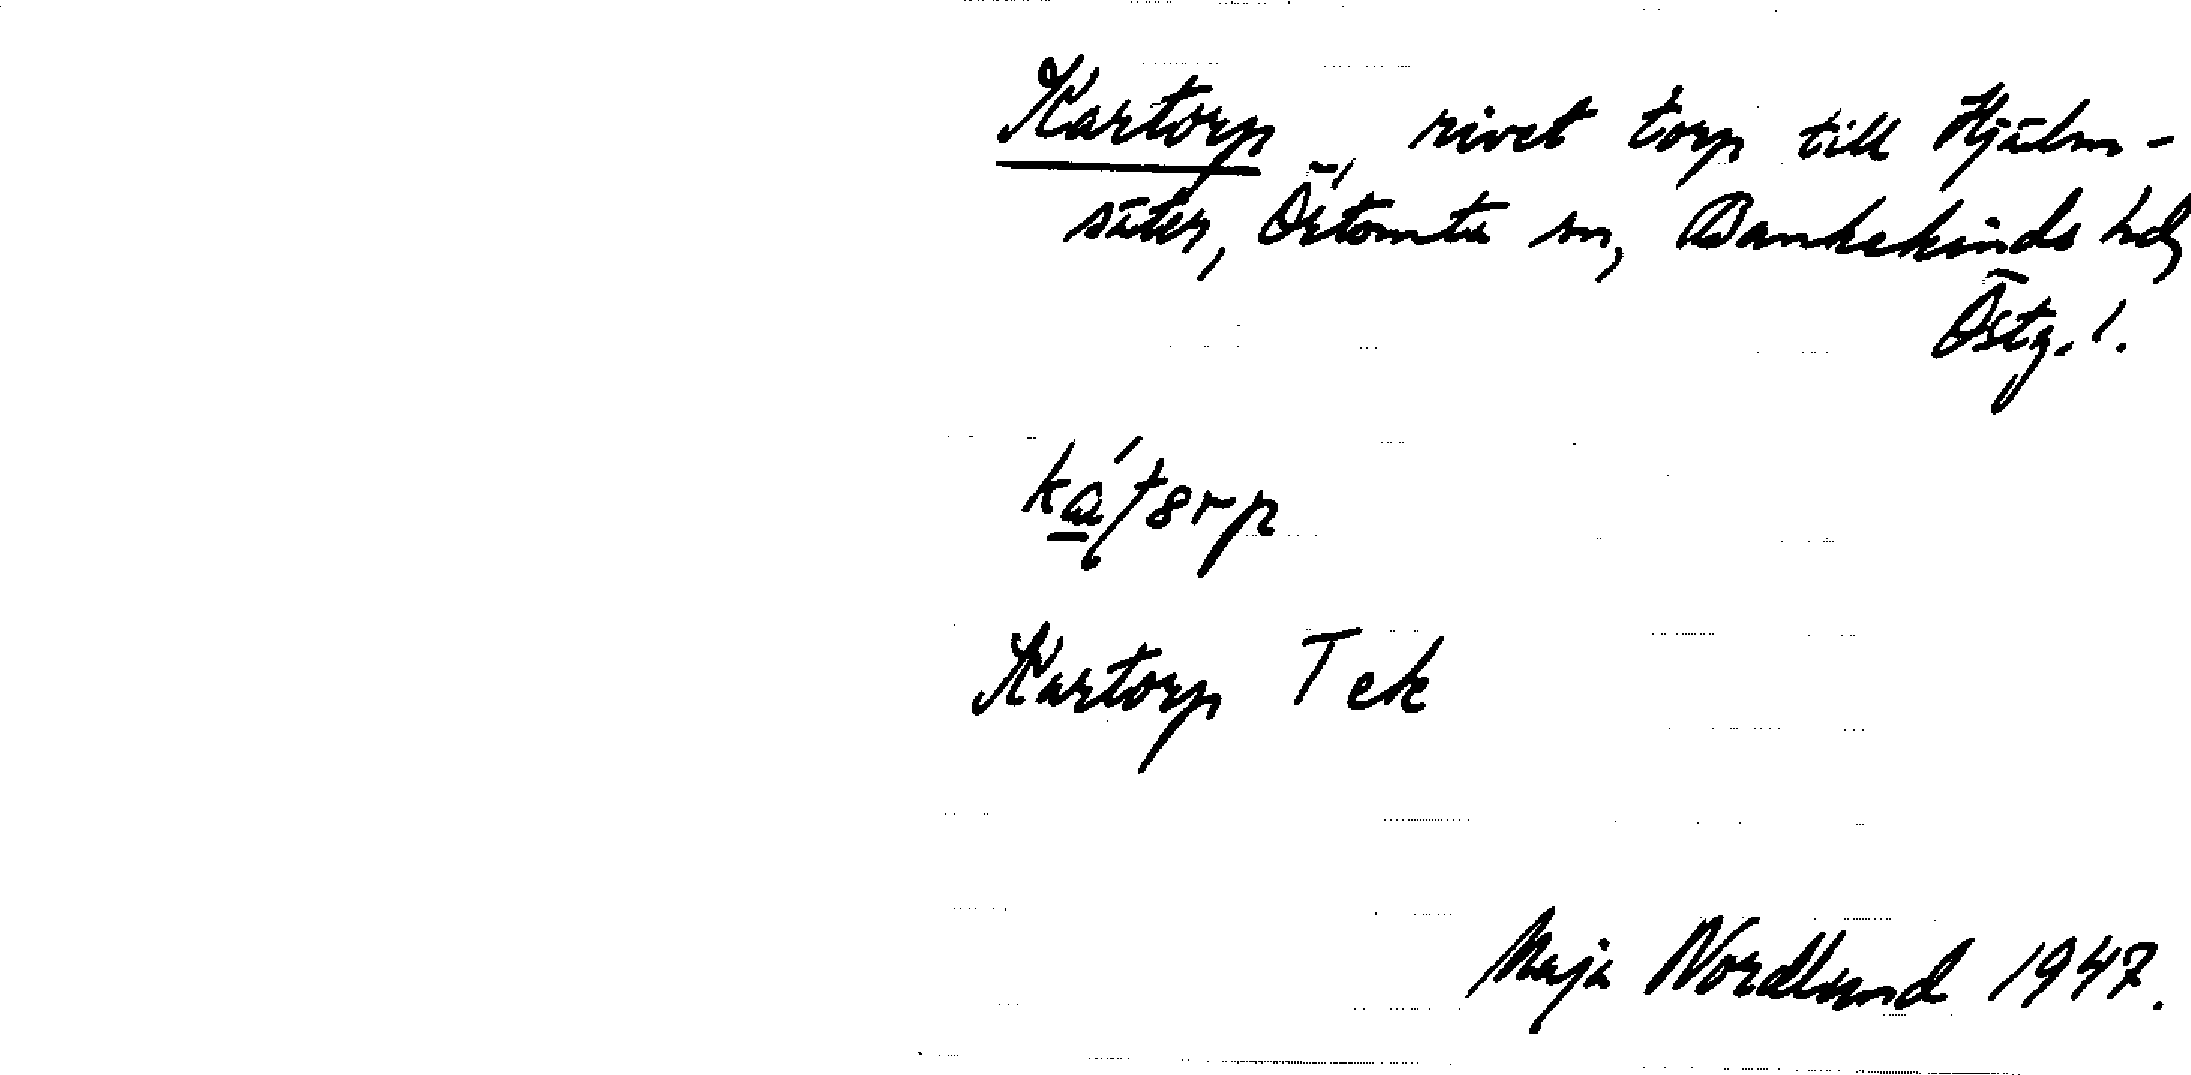 Kartorp, rivet torp till Hjälm-
säter, Örtomta sn, Bankekinds hd,
Östg. l.
Kartorp Tek
Maja Nordlund 1947.